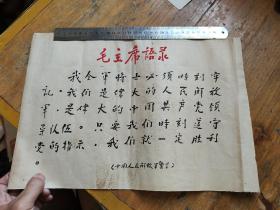 毛主席語录
我全軍將士必須時刻牢
記，我们是偉大的人民解放
軍，是偉大的中国共产党領
导队伍。只要我们時刻遵守
党的指示，我们就一定勝利
。
《中国人民解放军宣言》